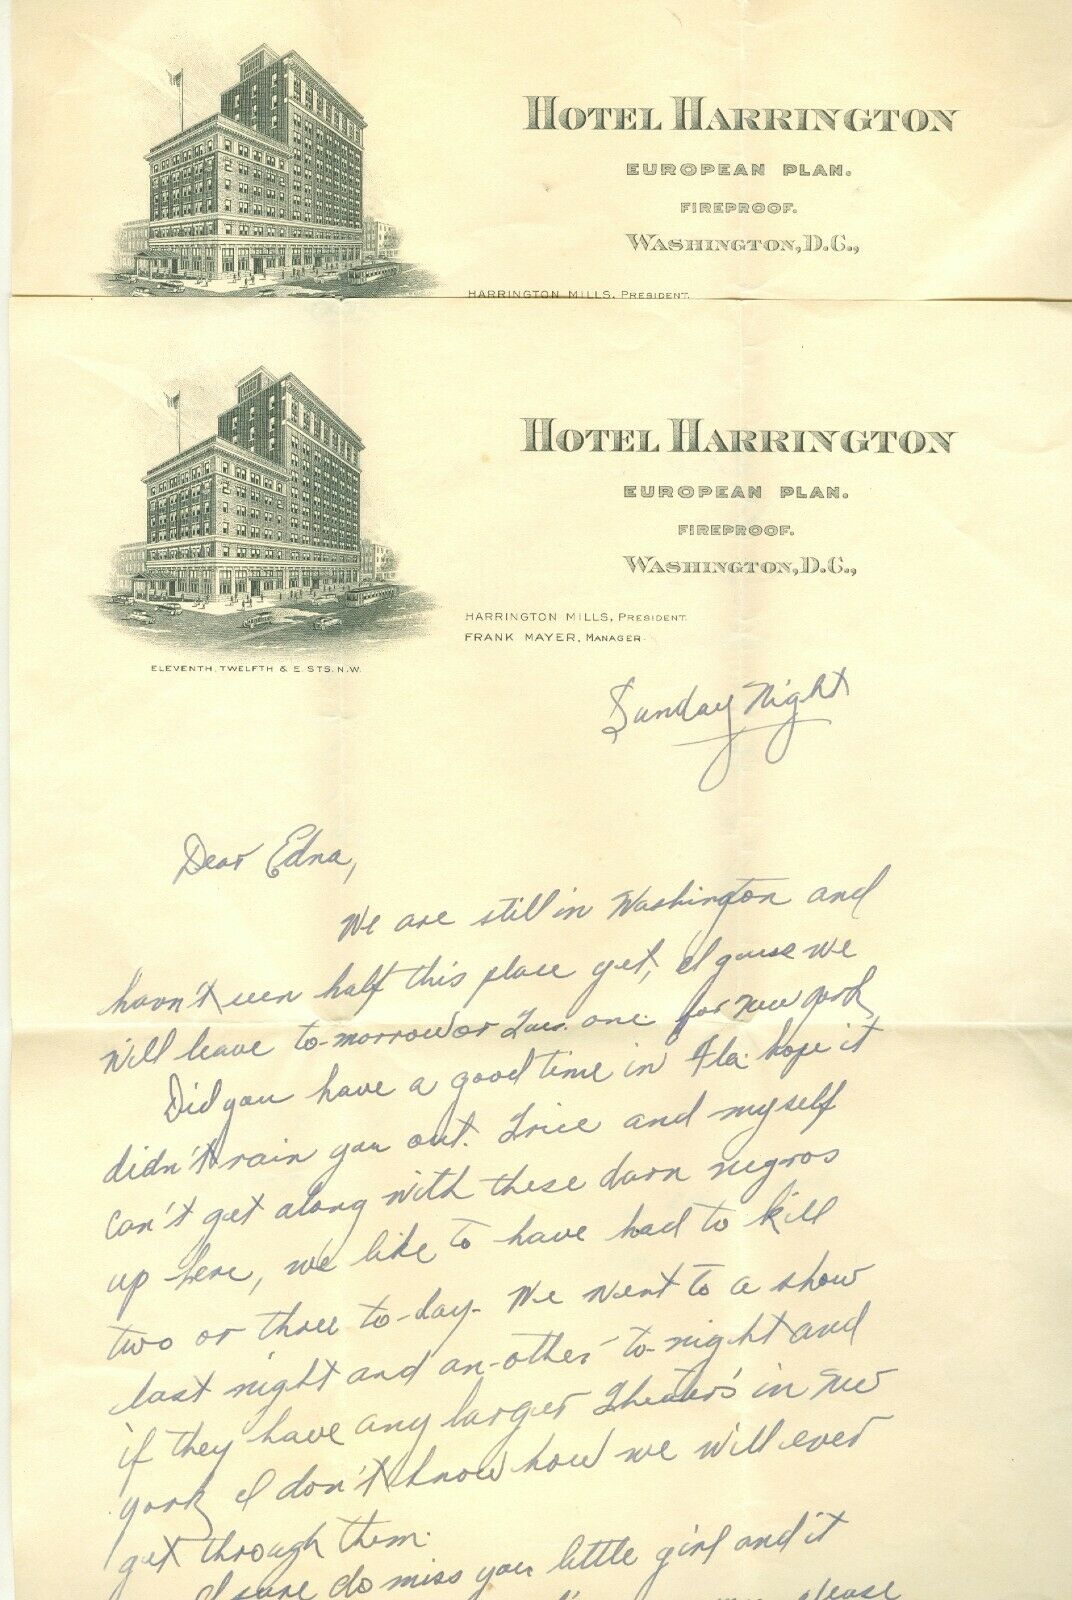 HOTEL HARRINGTON
EUROPEAN PLAN.
FIREPROOF.
WASHINGTON, D.C.,
HARRINGTON MILLS, PRESIDENT.
HOTEL HARRINGTON
EUROPEAN PLAN.
FIREPROOF.
WASHINGTON, D.C.,
HARRINGTON MILLS, PRESIDENT.
FRANK MAYER, MANAGER.
ELEVENTH, TWELFTH & E. STS. N.W.
Sunday Night
Dear Edna,
We are still in Washington and
havn't seen half this place yet, I guess we
will leave to-morrow or Tues. one for New York,
Did you have a good time in Fla. hope it
didn't rain you out. Trice and myself
can't get along with these darn negros
up here, we like to have had to kill
two or three to-day. We went to a show
last night and an-other to-night and
if they have any larger Theater's in New
York I don't know how we will ever
get through them.
I sure do miss you little girl and it
please